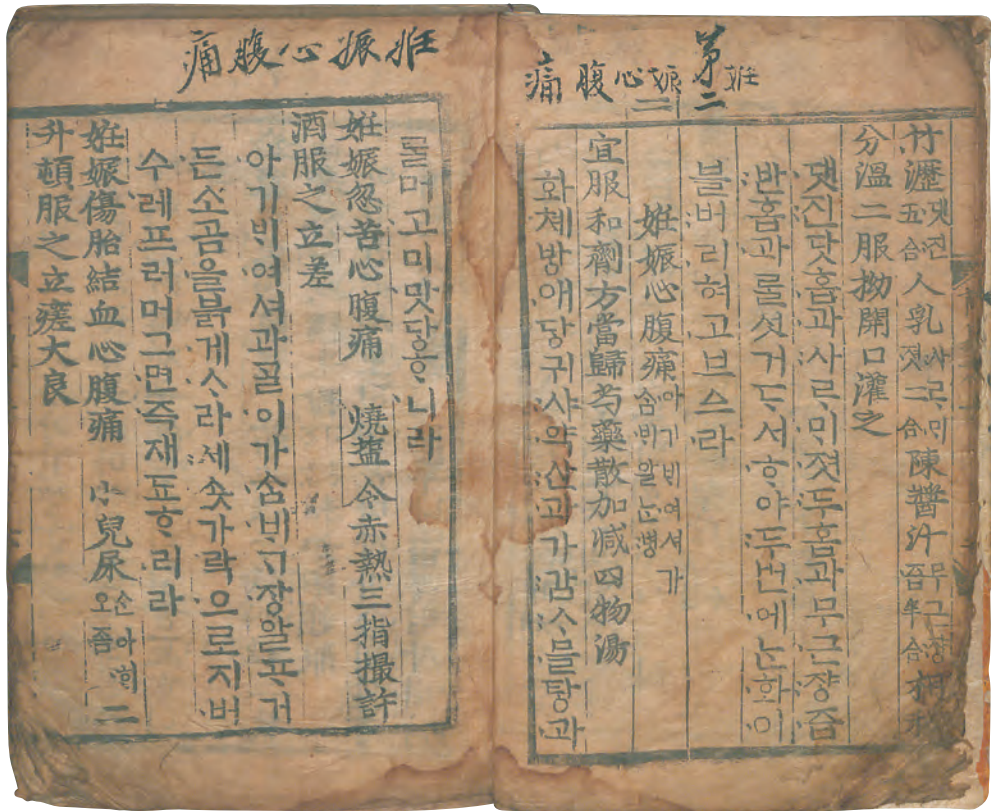 第二
姙娠心腹痛
竹瀝댓진五合 人乳사ᄅᆞᄆᆡ졋二合 陳醬汁무근쟝즙半合
分溫二服拗開口灌之
댓진닷홉과사ᄅᆞᄆᆡ졋두홉과무근쟝즙
반홉과ᄅᆞᆯ섯거ᄃᆞ서ᄒᆞ야두번에ᄂᆞᆫ화이
블버리혀고브스라
姙娠心腹痛아기ᄇᆡ여셔가ᄉᆞᆷᄇᆡ알ᄂᆞᆫ병
宜服和劑方當歸芍藥散加减四物湯
화졔방애당귀샤약산과가감ᄉᆞ믈탕과
姙娠心腹痛
ᄅᆞᆯ머고미맛당ᄒᆞ니라
姙娠忽苦心腹痛 燒塩令赤熱三指撮許
酒服之立差
아기ᄇᆡ여셔과ᄀᆞᆯ이가ᄉᆞᆷᄇᆡᄀᆞ장알ᄑᆞ거
든소곰을븕게ᄉᆞ라세솟가락으로지버
수레프러머그면즉재됴ᄒᆞ리라
姙娠傷胎結血心腹痛 小兒尿ᄉᆞᆫ아ᄒᆡ오좀二
升頓服之立瘥大良